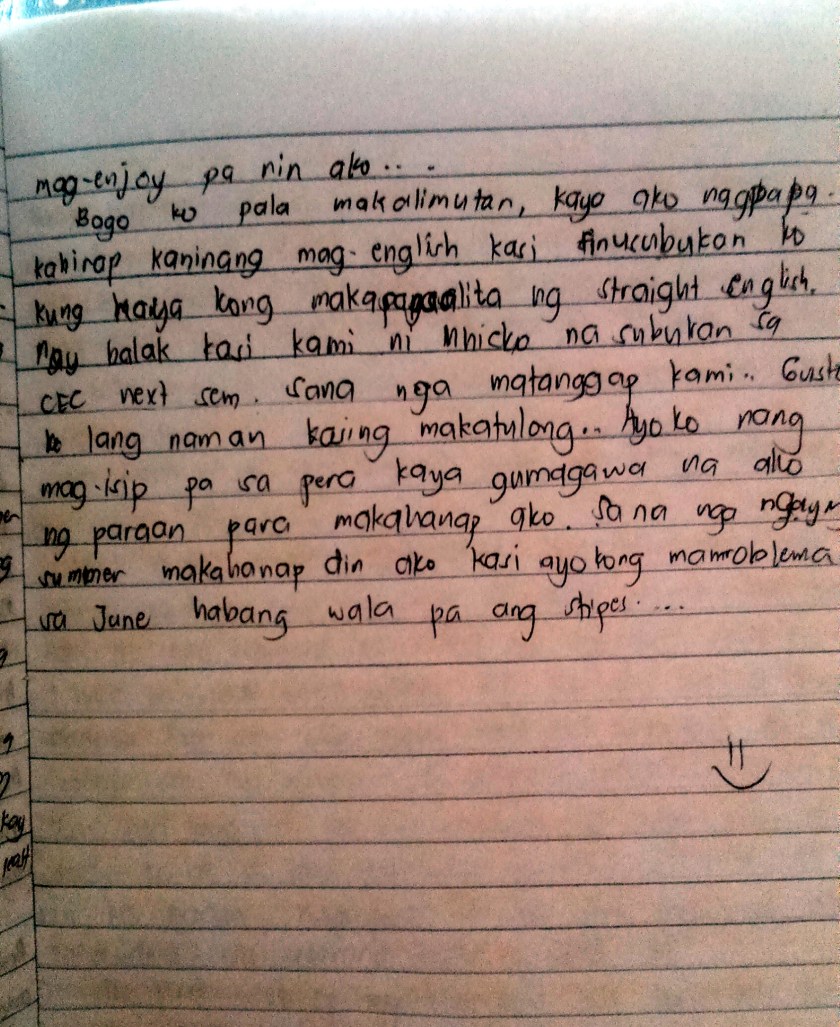 mag-enjoy pa nin ako.. .
Bago ko pala makalimutan, kaya ako nagpapa-
kahirap kaninang mag-english kasi sinusubukan ko
kung kaya kong makapagsalita ng straight english.
may balak kasi kami ni Nhicko na subukan sa
CEC next sem. Sana nga matanggap kami.. Gusto
ko lang naman kasing makatulong.. Ayoko nang
mag-isip pa sa pera kaya gumagawa na ako
ng paraan para makahanap ako. Sana nga ngayn
summer makahanap din ako kasi ayokong mamroblema
sa June habang wala pa ang stipes....
kay